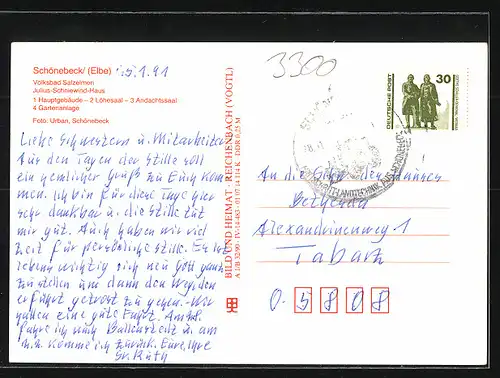 Schönebeck/ (Elbe) 15.1.91
Volksbad Salzelmen
Julius-Schniewind-Haus
1 Hauptgebäude – 2 Löhesaal – 3 Andachtssaal
4 Gartenanlage
Foto: Urban, Schönebeck
Liebe Schwestern u. Mitarbeiter
Aus den Tagen der Stille soll
ein gemeinsamer Gruß zu Euch kom-
men. Ich bin für diese Tage hier
sehr dankbar u. die Stille tut
mir gut. Auch haben wir viel
Zeit für persönliche Stille. Es ist
wichtig sich neu Gott ganz
zu stellen und dann den Weg den
er führt getrost zu gehen. Wir
hatten eine gute Fahrt.
fahre ich nach Ballenstedt u. am
komme ich zurück. Eure
Sr. Ruth
BILD UND HEIMAT · REICHENBACH (VOGTL)
3300
DEUTSCHE POST
30
An die Schw. des Hauses
Alexandrinenweg 1
Tabarz
0-5808